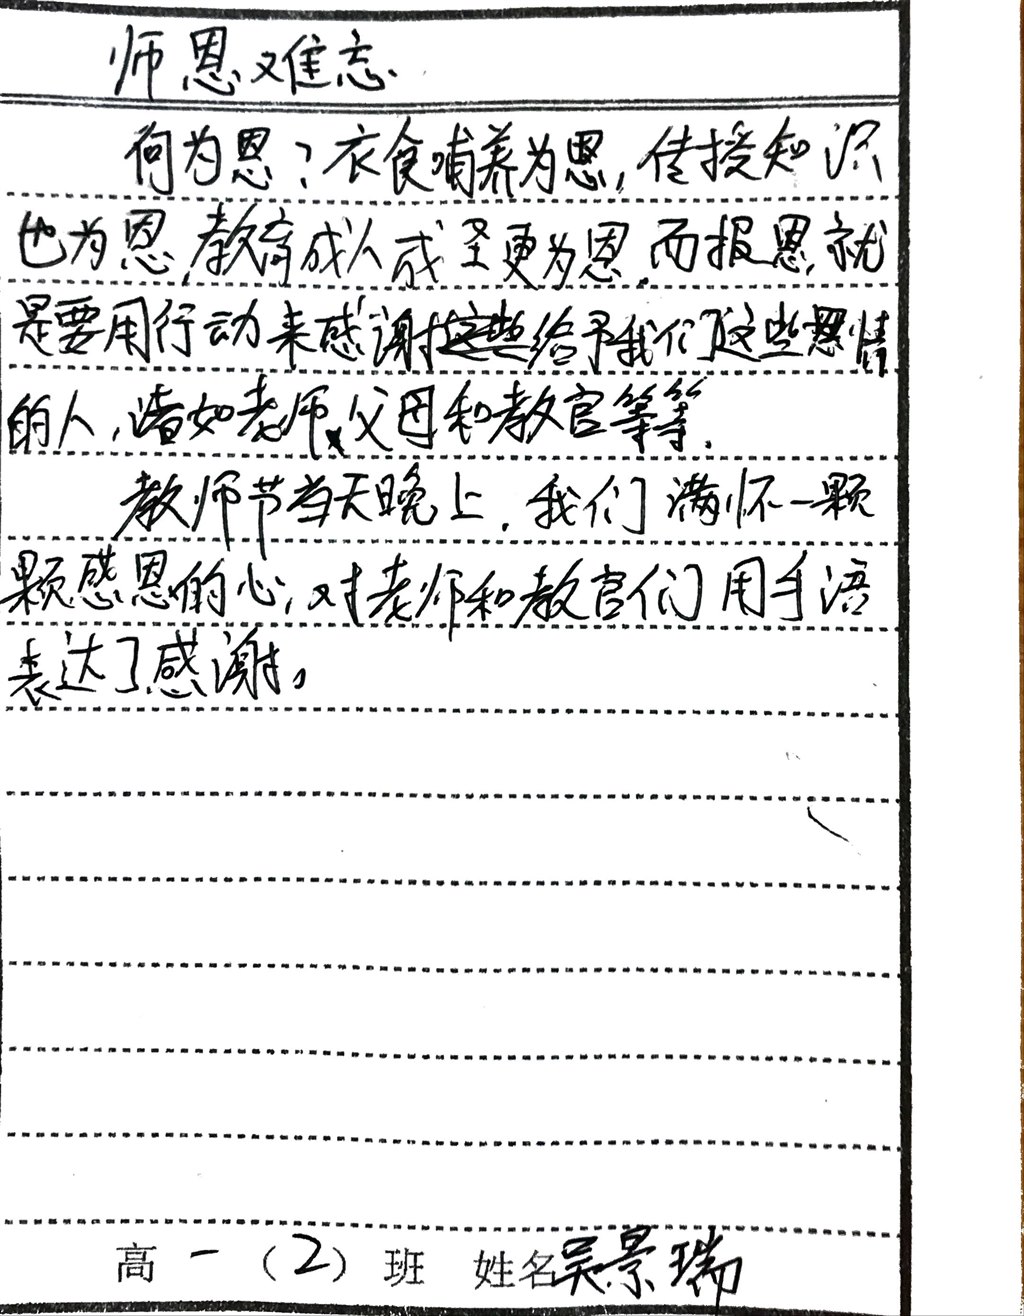 师恩难忘
何为恩？衣食哺养为恩，传授知识
也为恩，教育成人成圣更为恩，而报恩，就
是要用行动来感谢给予我们这些恩情
的人，诸如老师、父母和教官等等。
教师节当天晚上，我们满怀一颗
颗感恩的心，对老师和教官们用手语
表达了感谢。
高一（2）班 姓名吴景瑞